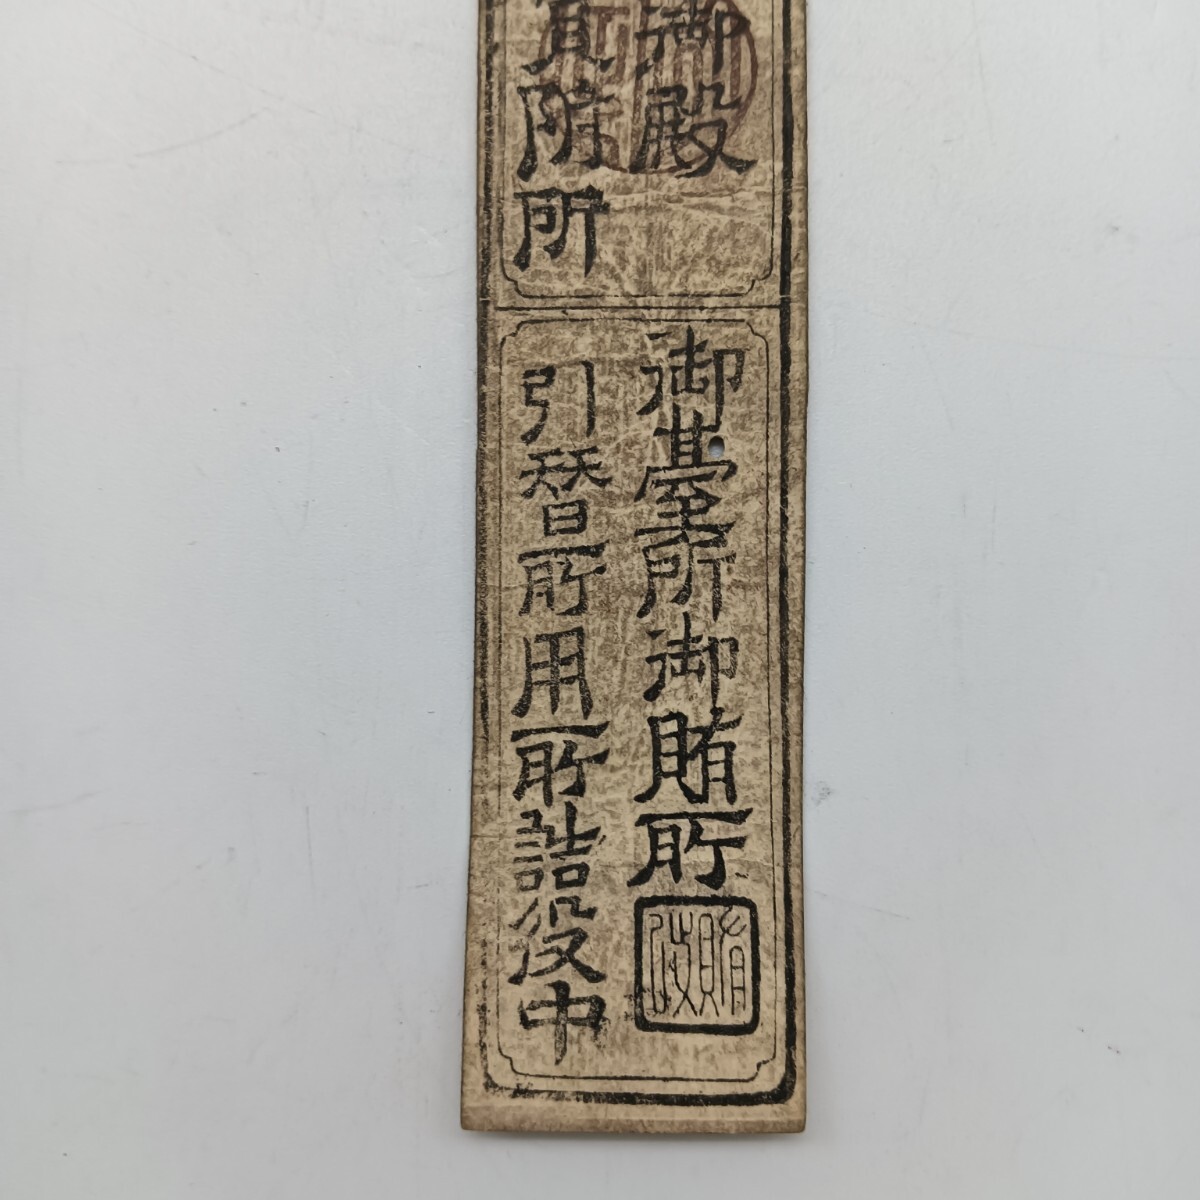 御殿
貸附所
御臺所御賄所
賄改
引替所用所詰役中